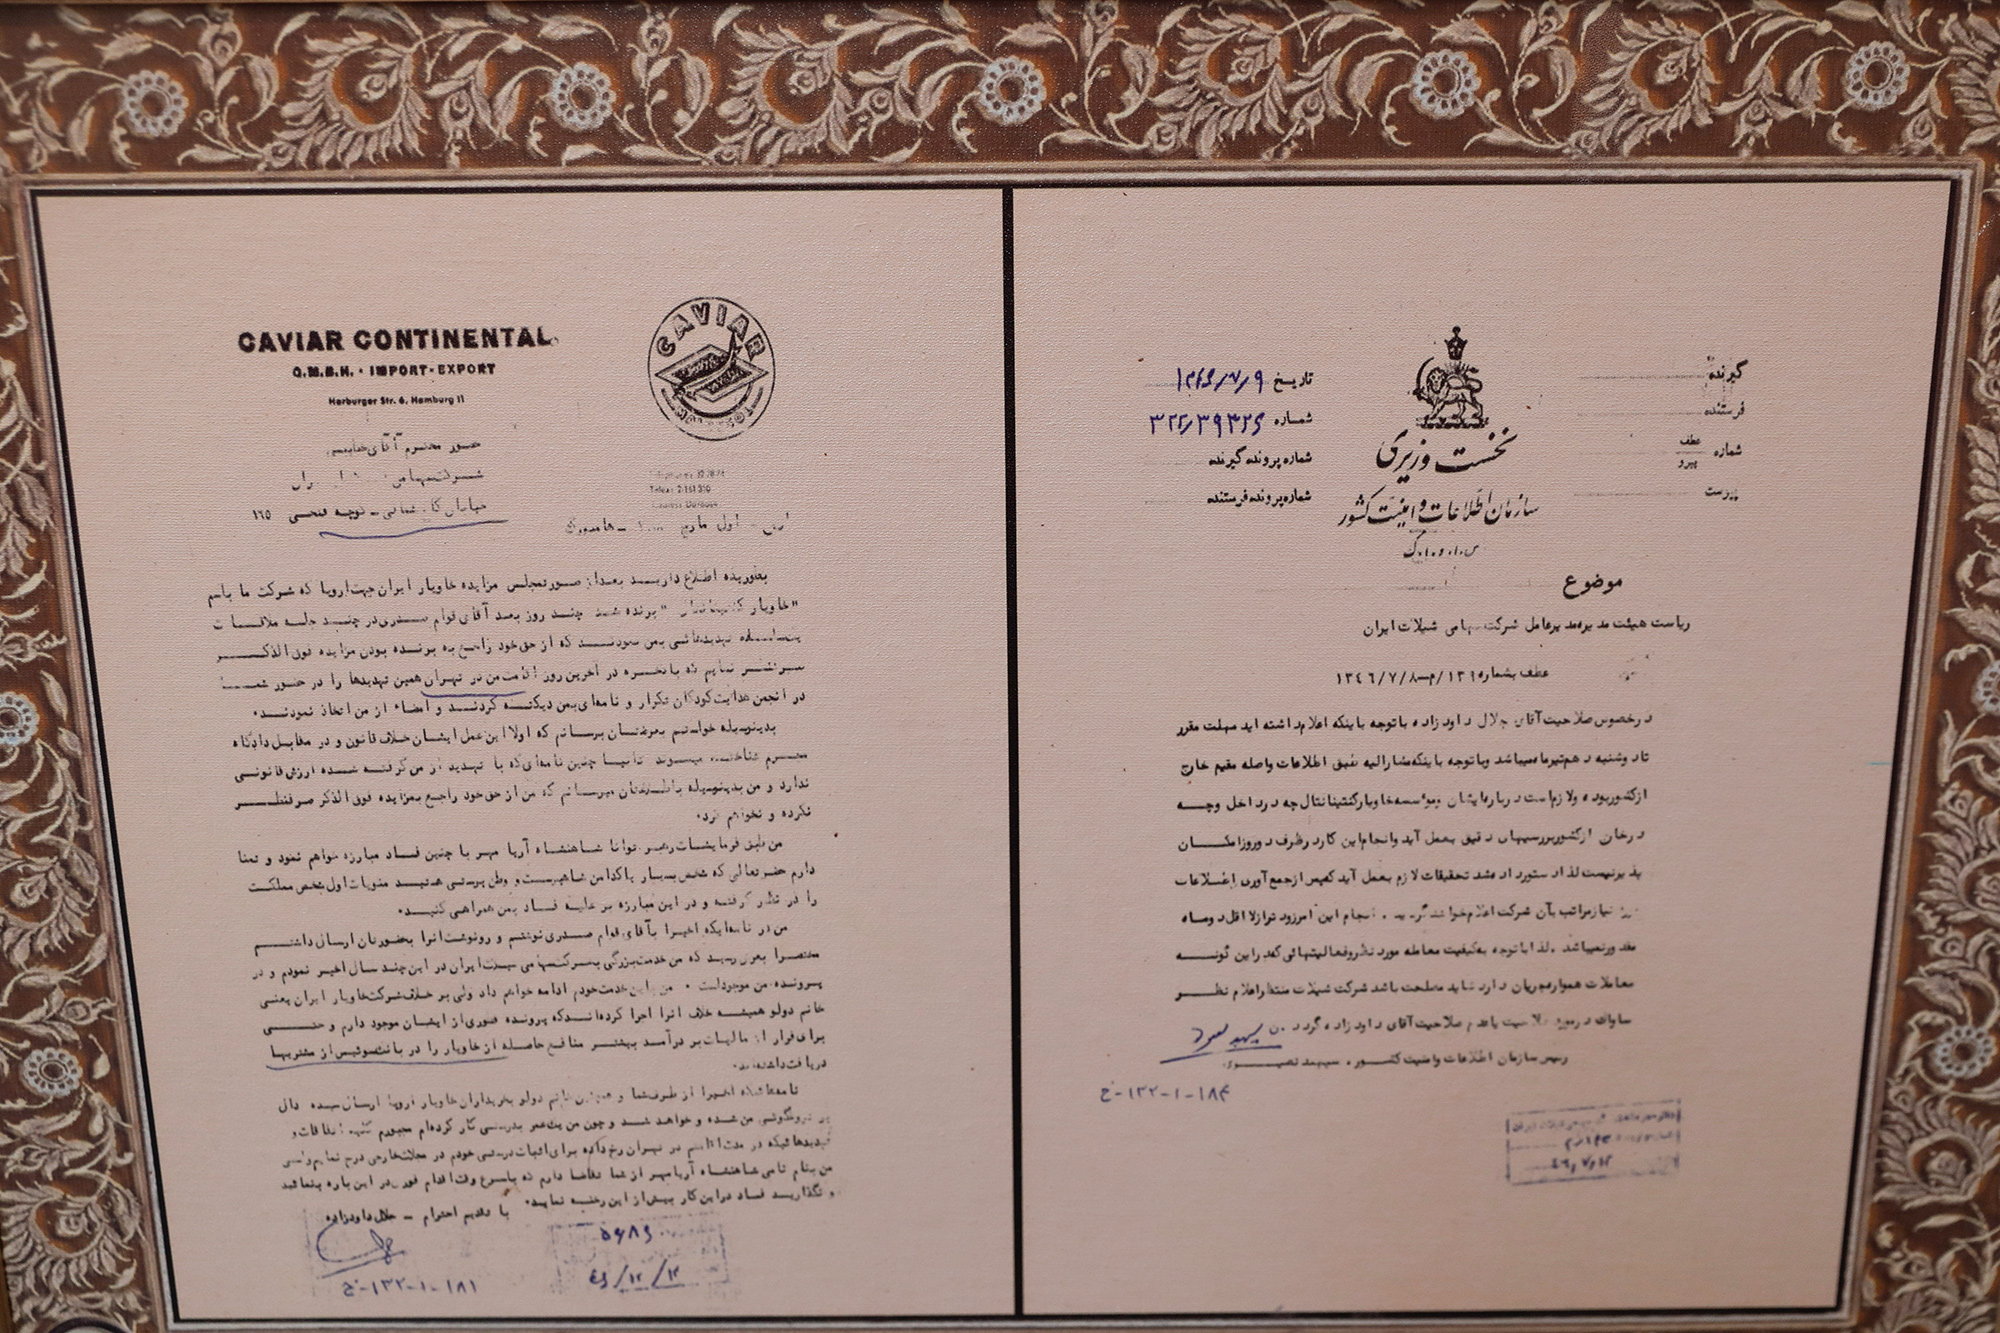 CAVIAR CONTINENTAL
G.M.B.H. · IMPORT-EXPORT
Harburger Str. 6, Hamburg 11
CAVIAR
حضور محترم آقای
شرکت سهامی
خیابان کاخ شمالی - کوچه فتحی ١٦٥
اول مارچ - هامبورک
بطوریکه اطلاع دارید بعد از صورتمجلس مزایده خاویار ایران جهت اروپا که شرکت ما باسم
"خاویار کنتیننتال" برنده شد چند روز بعد آقای قوام صدری در چند جلسه ملاقات
تهدیدهائی بمن نمودند که از حق خود راجع به برنده بودن مزایده فوق الذکر
صرفنظر نمایم که بالاخره در آخرین روز اقامت من در تهران همین تهدیدها را در حضور شما
در انجمن هدایت کودکان تکرار و نامه‌ای بمن دیکته کردند و امضاء از من اتخاذ نمودند.
بدینوسیله خواستم بعرضتان برسانم که اولا این عمل ایشان خلاف قانون و در مقابل دادگاه
مجرم شناخته میشوند ثانیا چنین نامه‌ای که با تهدید از من گرفته شده ارزش قانونی
ندارد و من بدینوسیله باطلاعتان میرسانم که من از حق خود راجع بمزایده فوق الذکر صرفنظر
نکرده و نخواهم کرد.
من طبق فرمایشات رهبر توانا شاهنشاه آریا مهر با چنین فساد مبارزه خواهم نمود و تمنا
دارم حضرتعالی که شخص بسیار پاکدامن شاهپرست و وطن پرستی هستید منویات اول شخص مملکت
را در نظر گرفته و در این مبارزه بر علیه فساد بمن همراهی کنید.
من در نامه‌ایکه اخیرا بآقای قوام صدری نوشتم و رونوشت انرا بحضورتان ارسال داشتم
مختصرا بعرض رسید که من خدمت بزرگی بشرکت سهامی شیلات ایران در این چند سال اخیر نمودم و در
پرونده من موجود است . من باین خدمت خودم ادامه خواهم داد ولی بر خلاف شرکت خاویار ایران یعنی
خانم دولو همیشه خلاف انرا اجرا کرده‌اند که پرونده قطوری از ایشان موجود دارم و حتی
برای فرار از مالیات بر درآمد بیشتر منافع حاصله از خاویار را در بانک سوئیس از مشتریها
دریافت داشته‌اند.
نامه‌هائیکه اخیرا از طرف شما و همچنین خانم دولو بخریداران خاویار اروپا ارسال شده دال
بر دروغگوئی من شده و خواهد شد و چون من یک عمر بدرستی کار کرده‌ام مجبورم کلیه اتفاقات و
تهدیدهائیکه در مدت اقامتم در تهران رخ داده برای اثبات درستی خودم در مجلات خارجی درج نمایم ولی
من بنام نامی شاهنشاه آریامهر از شما تقاضا دارم که باسرع وقت اقدام فوری در این باره بنمائید
و نگذارید فساد در این کار بیش از این رخنه نماید.
با تقدیم احترام - جلال داودزاده
۵۶۸۶
٤٦/١٢/١٢
١٨١-١-١٣٢-خ
گیرنده
فرستنده
شماره عطف
پیرو
پیوست
نخست وزیری
سازمان اطلاعات و امنیت کشور
س.ا.و.ا.ک
تاریخ ١٣٤٦/٧/٩
شماره ٣٢٢/٣٩٣٢٦
شماره پرونده گیرنده
شماره پرونده فرستنده
موضوع
ریاست هیئت مدیره و مدیرعامل شرکت سهامی شیلات ایران
عطف بشماره ١٣٦/م-٨/٧/١٣٤٦
درخصوص صلاحیت آقای جلال داودزاده باتوجه باینکه اعلام داشته اید مهلت مقرر
تا دوشنبه دهم تیرماه میباشد و با توجه باینکه مشارالیه طبق اطلاعات واصله مقیم خارج
از کشور بوده و لازم است درباره ایشان و موسسه خاویار کنتیننتال چه در داخل و چه
در خارج از کشور بررسیهای دقیق بعمل آید و انجام این کار در ظرف دو روز امکان
پذیر نیست لذا دستور داده شد تحقیقات لازم بعمل آید که پس از جمع آوری اطلاعات
مورد نیاز مراتب بآن شرکت اعلام خواهد گردید . انجام این امر زودتر از لااقل دو ماه
مقدور نمیباشد . لذا با توجه به کیفیت معامله مورد نظر و فعالیتهائی که در این گونه
معاملات همواره جریان دارد شاید مصلحت باشد شرکت شیلات منتظر اعلام نظر
ساواک در مورد صلاحیت یا عدم صلاحیت آقای داودزاده گردد.
رئیس سازمان اطلاعات و امنیت کشور . سپهبد نصیری
١٨٤-١-١٣٢-خ
٤٦/٧/١٢